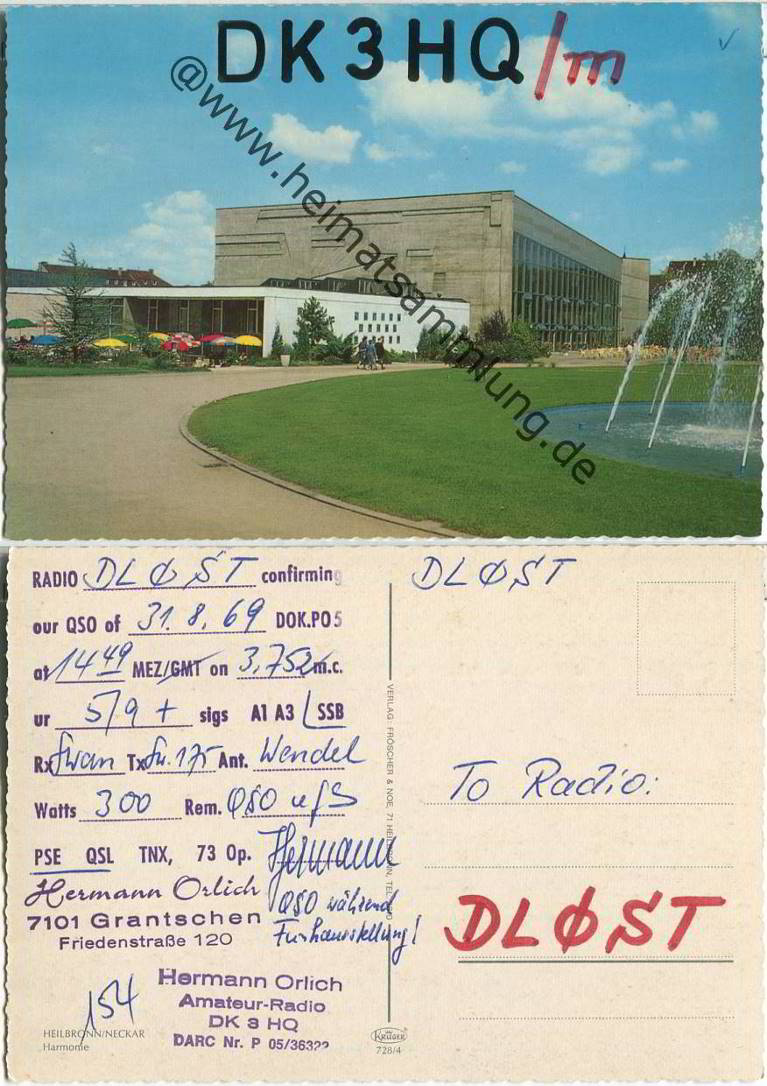 DK3HQ/m
@www.heimatsammlung.de
RADIO DLØST confirming
our QSO of 31.8.69 DOK.PO5
at 14 49 MEZ/GMT on 3,752 m.c.
ur 5/9 + sigs A1 A3 SSB
Rx Swan Tx Sw. 175 Ant. Wendel
Watts 300 Rem. QSO
PSE QSL TNX, 73 Op. Hermann
Hermann Orlich
7101 Grantschen
Friedenstraße 120
QSO während
Funkausstellung!
154
Hermann Orlich
Amateur-Radio
DK 3 HQ
DARC Nr. P 05/36322
HEILBRONN/NECKAR
Harmonie
VERLAG FRÖSCHER & NOE, 71 HEILBRONN, TEL.
KRÜGER
728/4
DLØST
To Radio:
DLØST